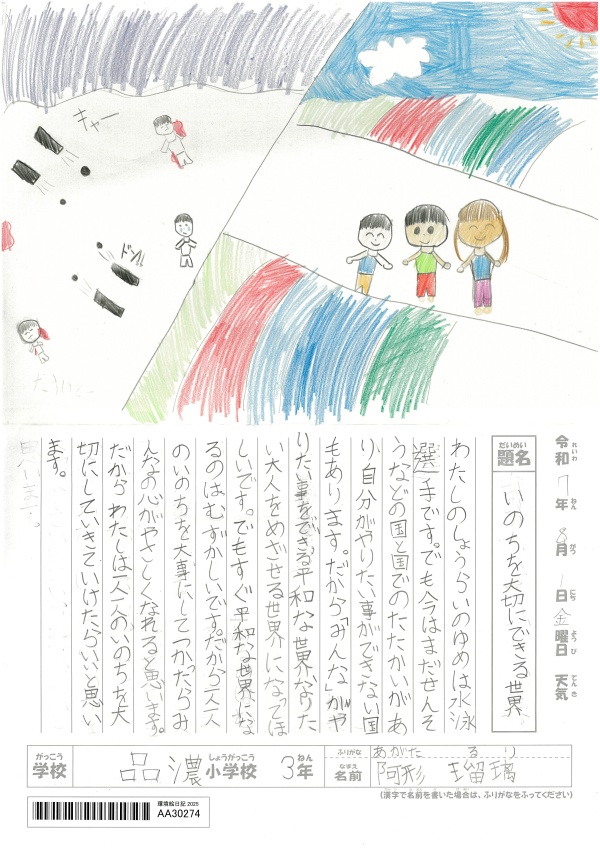 キャー
ドン!!
令和7年8月1日金曜日 天気
れいわ ねん がつ にち ようび てんき
だいめい
題名
いのちを大切にできる世界
わたしのしょうらいのゆめは水泳
選手です。でも今はまだせんそ
うなどの国と国でのたたかいがあ
り、自分がやりたい事ができない国
もあります。だから「みんな」がや
りたい事をできる平和な世界、なりた
い大人をめざせる世界になってほ
しいです。でもすぐ平和な世界にな
るのはむずかしいです。だから一人一人
のいのちを大事にしてつかだらみ
んなの心がやさしくなれると思います。
だからわたしは一人一人のいのちを大
切にしていきていけたらいいと思い
ます。
がっこう しょうがっこう ねん
学校 品濃小学校 3年
ふりがな あがた るり
なまえ
名前 阿形 瑠璃
(漢字で名前を書いた場合は、ふりがなをふってください)
環境絵日記2025
AA30274